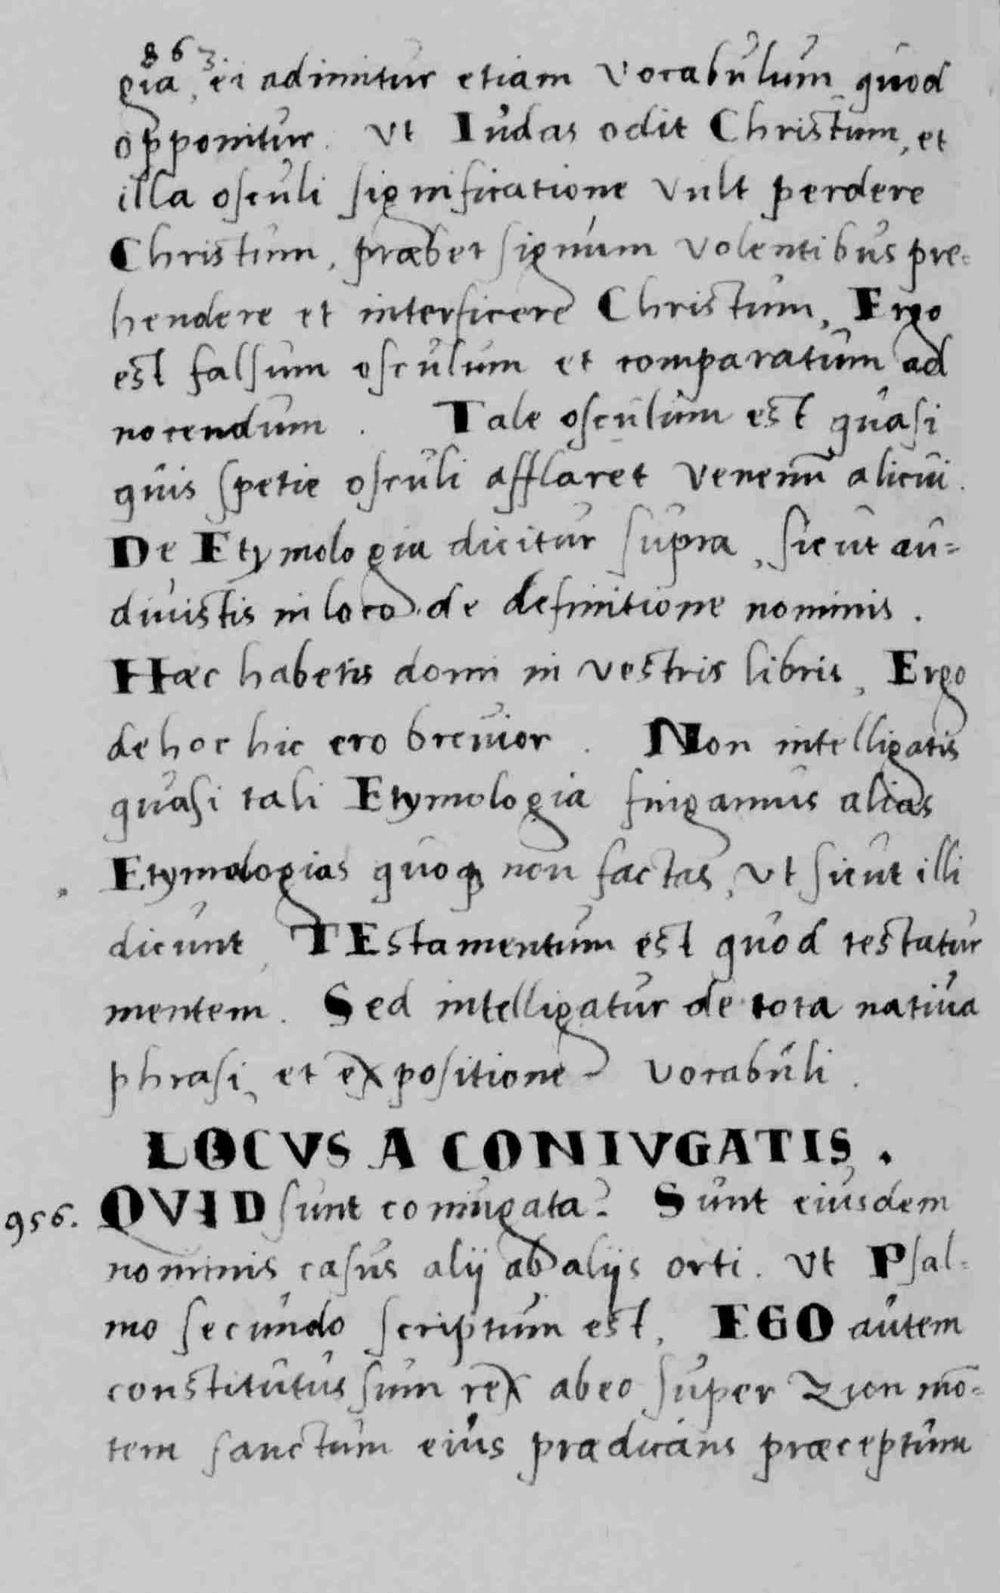 863
gia, ei adimitur etiam vocabulum quod
opponitur. Vt Iudas odit Christum, et
illa osculi significatione vult perdere
Christum, præbet signum volentibus pre=
hendere et interficere Christum. Ergo
est falsum osculum et comparatum ad
nocendum. Tale osculum est quasi
quis spetie osculi afflaret venenū alicui.
De Etymologia dicitur supra, sicut au=
diuistis in loco de definitione nominis.
Hæc habetis domi in vestris libris, Ergo
de hoc hic ero breuior. Non intelligatis
quasi tali Etymologia fingamus alias
Etymologias quoqꝫ non factas, vt sicut illi
dicunt, TEstamentum est quod testatur
mentem. Sed intelligatur de tota natiua
phrasi, et expositione vocabuli.
LOCVS A CONIVGATIS.
956. QVID sunt coniugata? Sunt eiusdem
nominis casus alij ab alijs orti. Vt Psal=
mo secundo scriptum est, EGO autem
constitutus sum rex ab eo super Zion mō=
tem sanctum eius prædicans præceptum